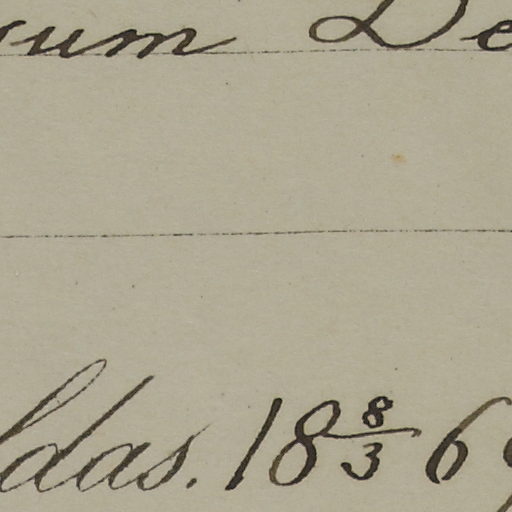 um De
ldas. 18 8/3 6